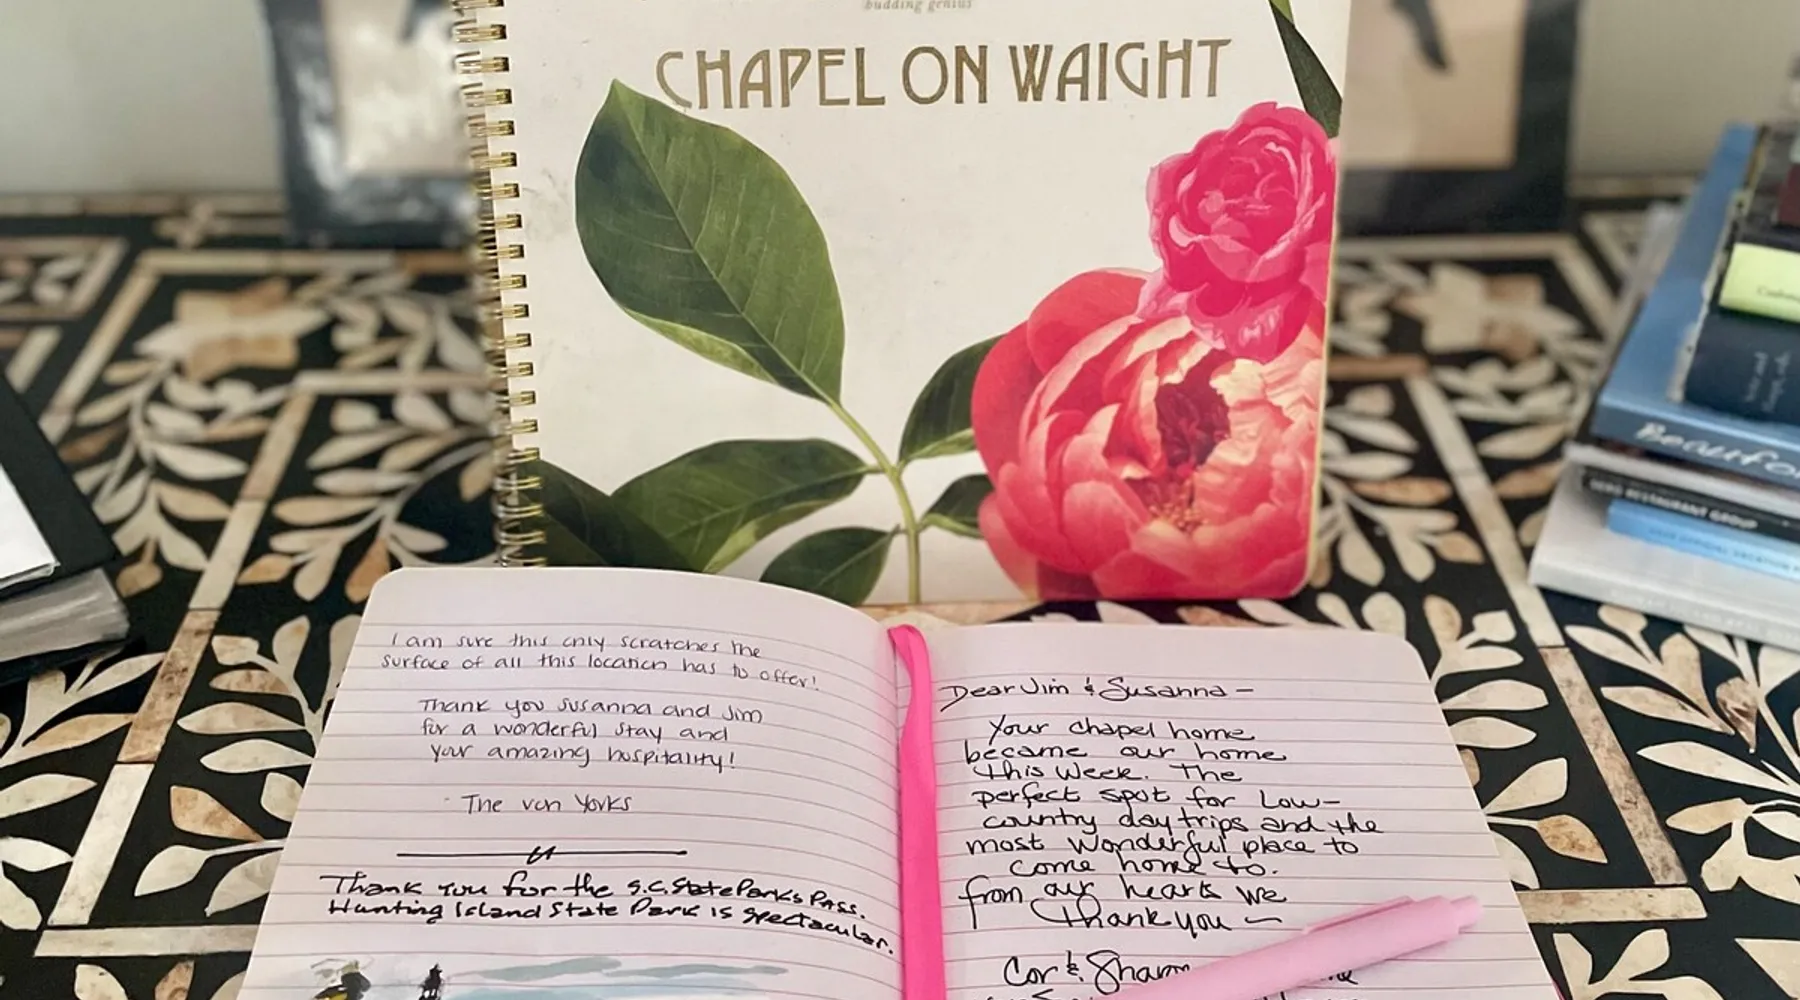 budding genius
CHAPEL ON WAIGHT
I am sure this only scratches the
surface of all this location has to offer!
Thank you Susanna and Jim
for a wonderful stay and
your amazing hospitality!
- The van Yorks
Thank you for the S.C. State Parks Pass.
Hunting Island State Park is spectacular.
Dear Jim & Susanna -
Your chapel home
became our home
this week. The
perfect spot for low-
country day trips and the
most wonderful place to
come home to.
from our hearts we
Thank you ~
Cor &
Beaufo
RESTAURANT GROUP